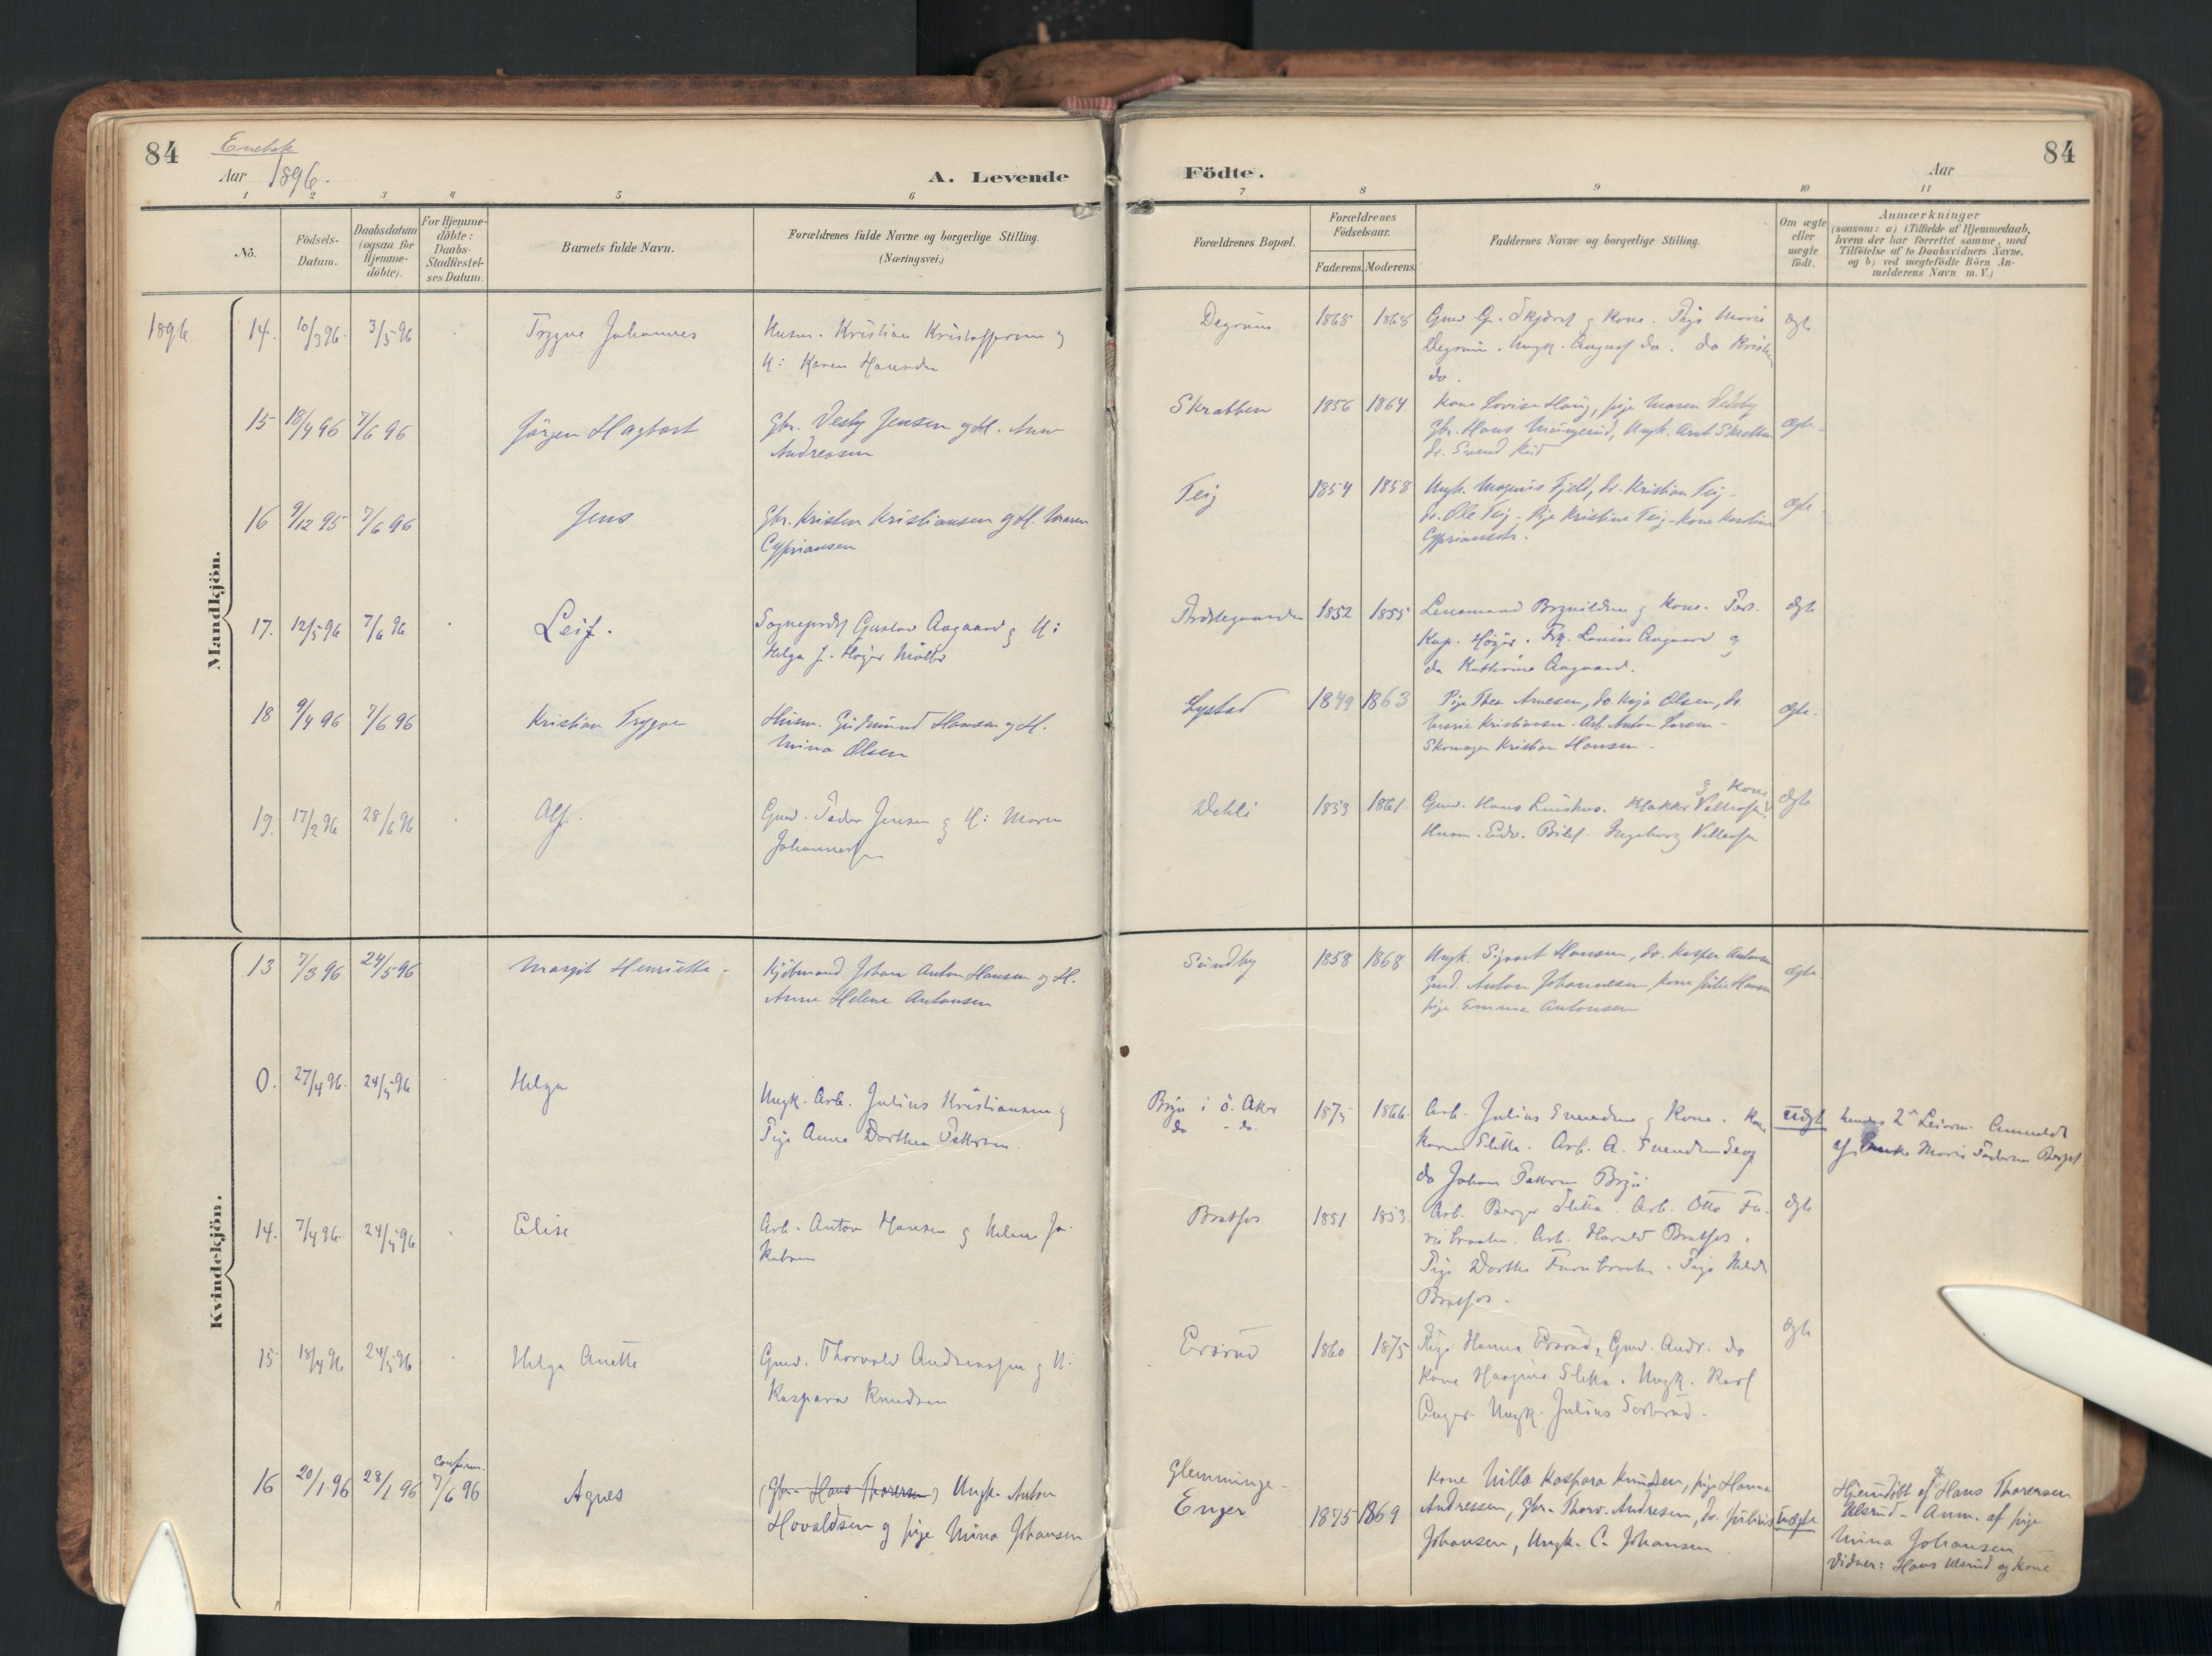 84
Enebak
Aar 1896.
A. Levende
1 2 3 4 5 6
No.
Födsels-
Datum.
Daabsdatum
(ogsaa for
Hjemme-
döbte).
For Hjemme-
döbte:
Daabs-
Stadfæstel-
ses Datum.
Barnets fulde Navn.
Forældrenes fulde Navne og borgerlige Stilling.
(Næringsvei.)
Mandkjön.
1896
14. 10/3 96. 3/5 96 Trygve Johannes Husm. Kristian Kristoffersen og
H: Karen Hansdr
15 18/4 96 7/6 96 Jörgen Hagbart Gbr. Vesby Jensen og H. Anne
Andressen
16 9/12 95 7/6 96 Jens Gbr. Kristen Kristiansen og H. Maren
Cypriansen
17. 12/5 96 7/6 96 Leif. Sognepræst Gustav Aagaard og H:
Helga J. Höyer Möller
18 9/4 96 7/6 96 Kristian Trygve Husm. Gudmund Hansen og H.
Mina Olsen
19. 17/2 96 28/6 96 Alf. Gmd. Peder Jensen og H: Maren
Johannesen
Kvindekjön.
13 7/3 96 24/5 96 Margit Henriette - Kjöbmand Johan Anton Hansen og H.
Anne Helene Antonsen
0. 27/4 96. 24/5 96 Helga
Ungk. Arb. Julius Kristiansen og
Pige Anne Dorthea Pettersen.
14. 7/4 96. 24/5 96 Elise Arb. Anton Hansen og Helene Ja-
kobsen
15 18/4 96 24/5 96 Helga Anette Gmd. Thorvald Andreassen og H:
Kaspara Knudsen
16 20/1 96 28/1 96 confirm. 7/6 96 Agnes (Gbr. Hans Thoresen) Ungk. Anton
Hovaldsen og pige Mina Johansen
84
Födte.
Aar
7 8 9 10 11
Forældrenes Bopæl.
Forældrenes
Födselsaar.
Faderens. Moderens.
Faddernes Navne og borgerlige Stilling.
Om ægte
eller
uægte
födt.
Anmærkninger
(saasom: a) i Tilfælde af Hjemmedaab,
hvem der har forrettet samme, med
Tilföielse af to Daabsvidners Navne,
og b) ved uægtefödte Börn An-
melderens Navn m. V.)
Degrum 1868 1868 Kone. Pige Marie ægte
Degrum. Ungk. August do. do Kristian
do.
Skrabben 1856 1864 Kone Lovise Haug, pige Maren Vestby ægte.
Gbr. Hans
do. Svend
Teig 1854 1858 Ungk. Magnus Fjeld, do. Kristian Teig - ægte
do. Ole Teig - Pige Kristine Teig - Kone Karoline
Cypriansdr.
Præstegaarden 1852 1855 Lensmand Brynildsen og Kone. Pers.
ægte
Kap. Höyer. Frk. Louise Aagaard og
do Kathrine Aagaard.
Lystad 1849 1863 Pige Thea Arnesen, do. Kaja Olsen, do. ægte.
Marie Kristiansen - Arb. Anton Larsen -
Skomager Kristian Hansen -
Dehli 1853 1861. Gmd. Hans og Kone ægte
Husm. Edv. Ingeborg
Sundby 1858 1868 Ungk. Sigvart Hansen, do. Kasper Antonsen ægte
Gmd. Anton Johannesen, Kone Julie Hansen
pige Emma Antonsen
Bryn i Ö. Aker 1875 1866. Arb. Julius Svendsen og Kone. Kone uægte hendes 2det Leierm. Anmeldt
do - do. Karen Sletta. Arb. A. Svendsen
af Enke Marie Pedersen
do Johan Pettersen Bryn
Bratfos 1851 1853. Arb. Berger Sletta. Arb. Otto Fu- ægte
rubraaten. Arb. Harald Bratfos.
Pige Dorthe Furubraaten. Pige Hilda
Bratfos.
Ersrud 1860 1875 Pige Hanna Ersrud, Gmd. Andr. do ægte
Kone Sletta. Ungk. Karl
Ungk. Julius
Glemminge-
Enger 1875 1869 Kone Milla Kaspara Knudsen, pige Hanna
Andressen, gbr. Thorv. Andresen, do. Julius uægte
Johansen, Ungk. C. Johansen
Hjemdöbt af Hans Thoresen
Ulsrud - Anm. af pige
Mina Johansen
Vidner: Hans Ulsrud og Kone